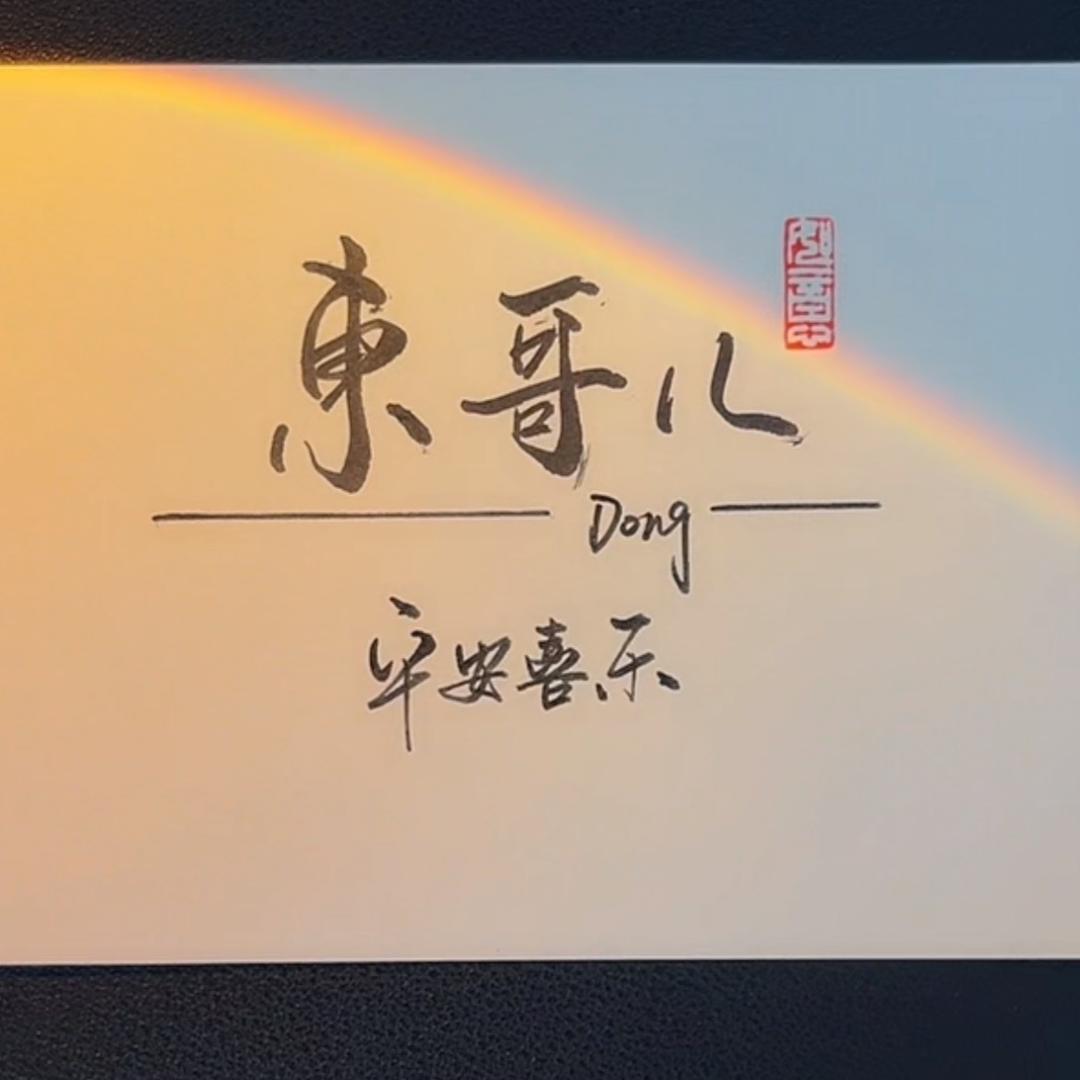 東哥儿
Dong
平安喜乐